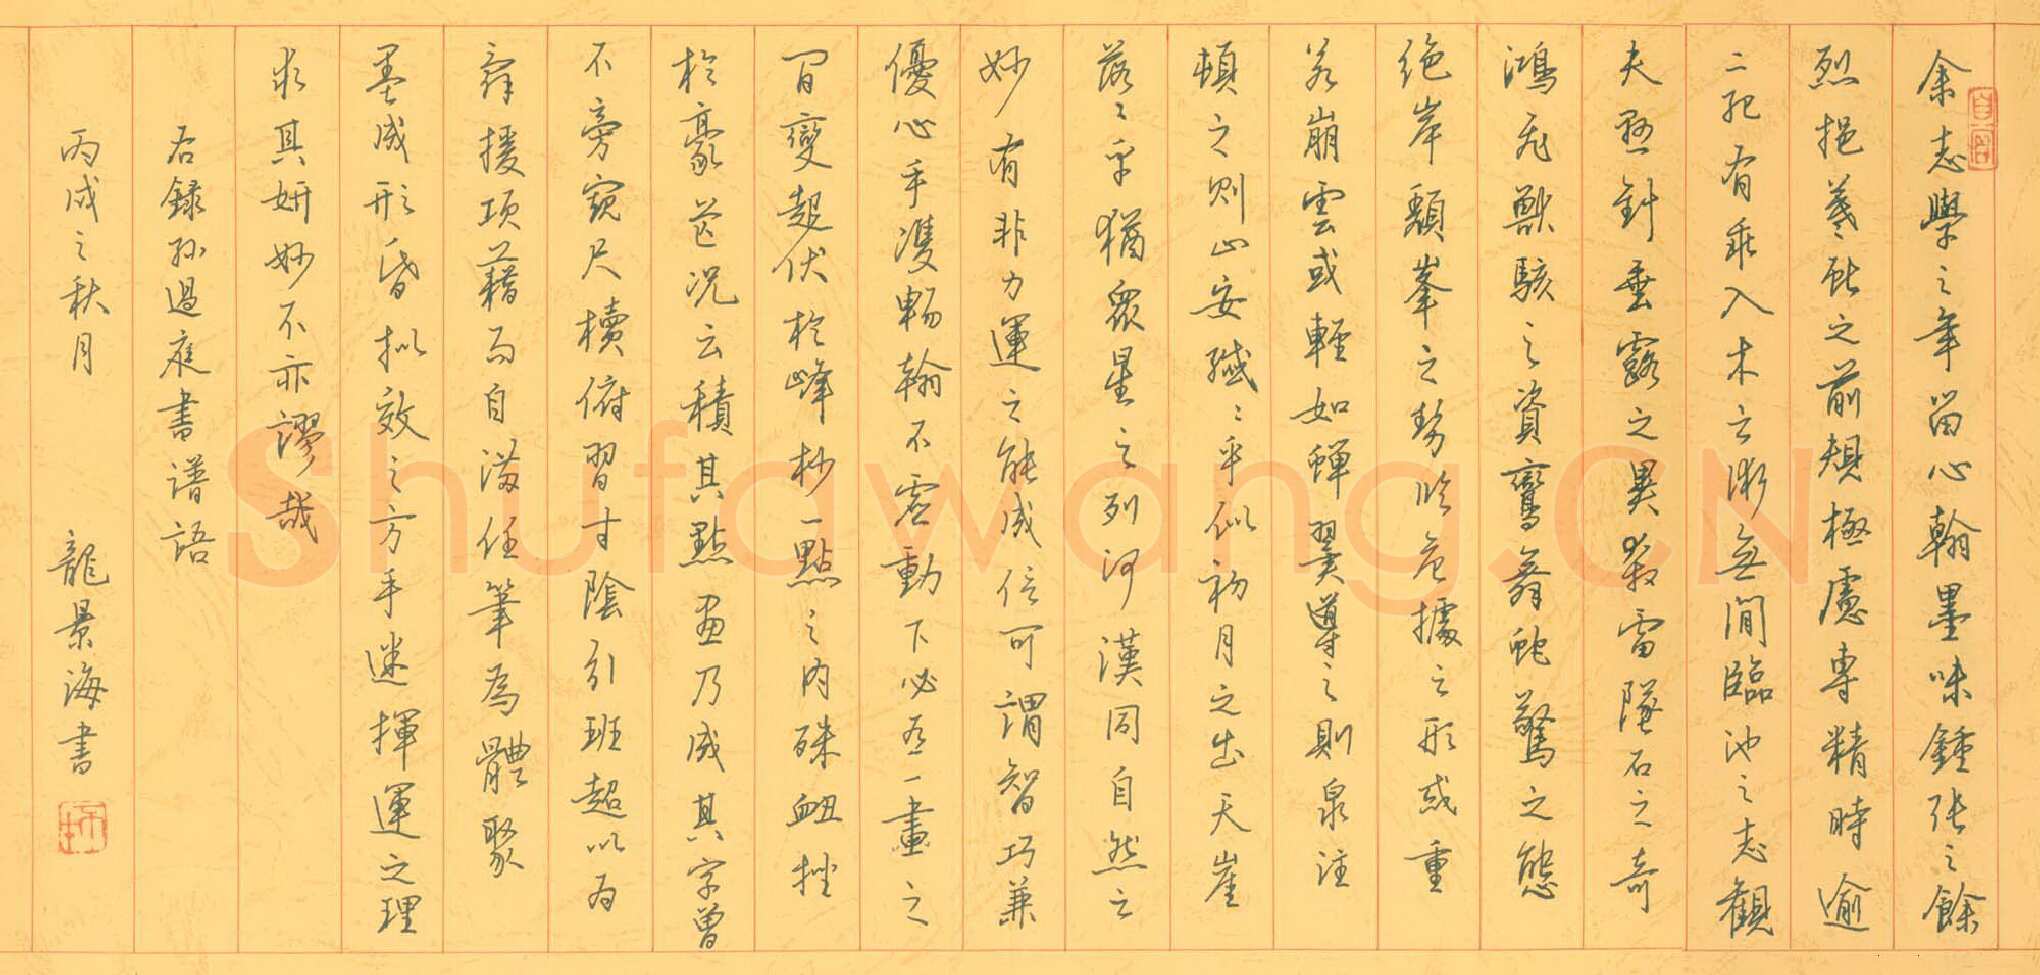 余志學之年留心翰墨味鍾张之餘
烈挹羲献之前規極慮專精時逾
二紀有乖入木之術無間臨池之志觀
夫懸針垂露之異奔雷墜石之奇
鴻飛獸駭之資鸞舞蛇驚之態
绝岸頹峯之势临危據之形或重
若崩雲或輕如蟬翼導之則泉注
頓之则山安纖〻乎似初月之出天崖
落〻乎猶眾星之列河漢同自然之
妙有非力運之能成信可謂智巧兼
優心手雙畅翰不虛動下必有一畫之
间變起伏於峰杪一點之内殊衄挫
於豪芒况云積其點畫乃成其字曾
不旁窥尺櫝俯習寸陰引班超以为
辭援項藉而自滿任筆為體聚
墨成形昏拟效之方手迷揮運之理
求其妍妙不亦謬哉
右録孙過庭書譜語
丙戌之秋月 龍景海書
Shufawang.CN